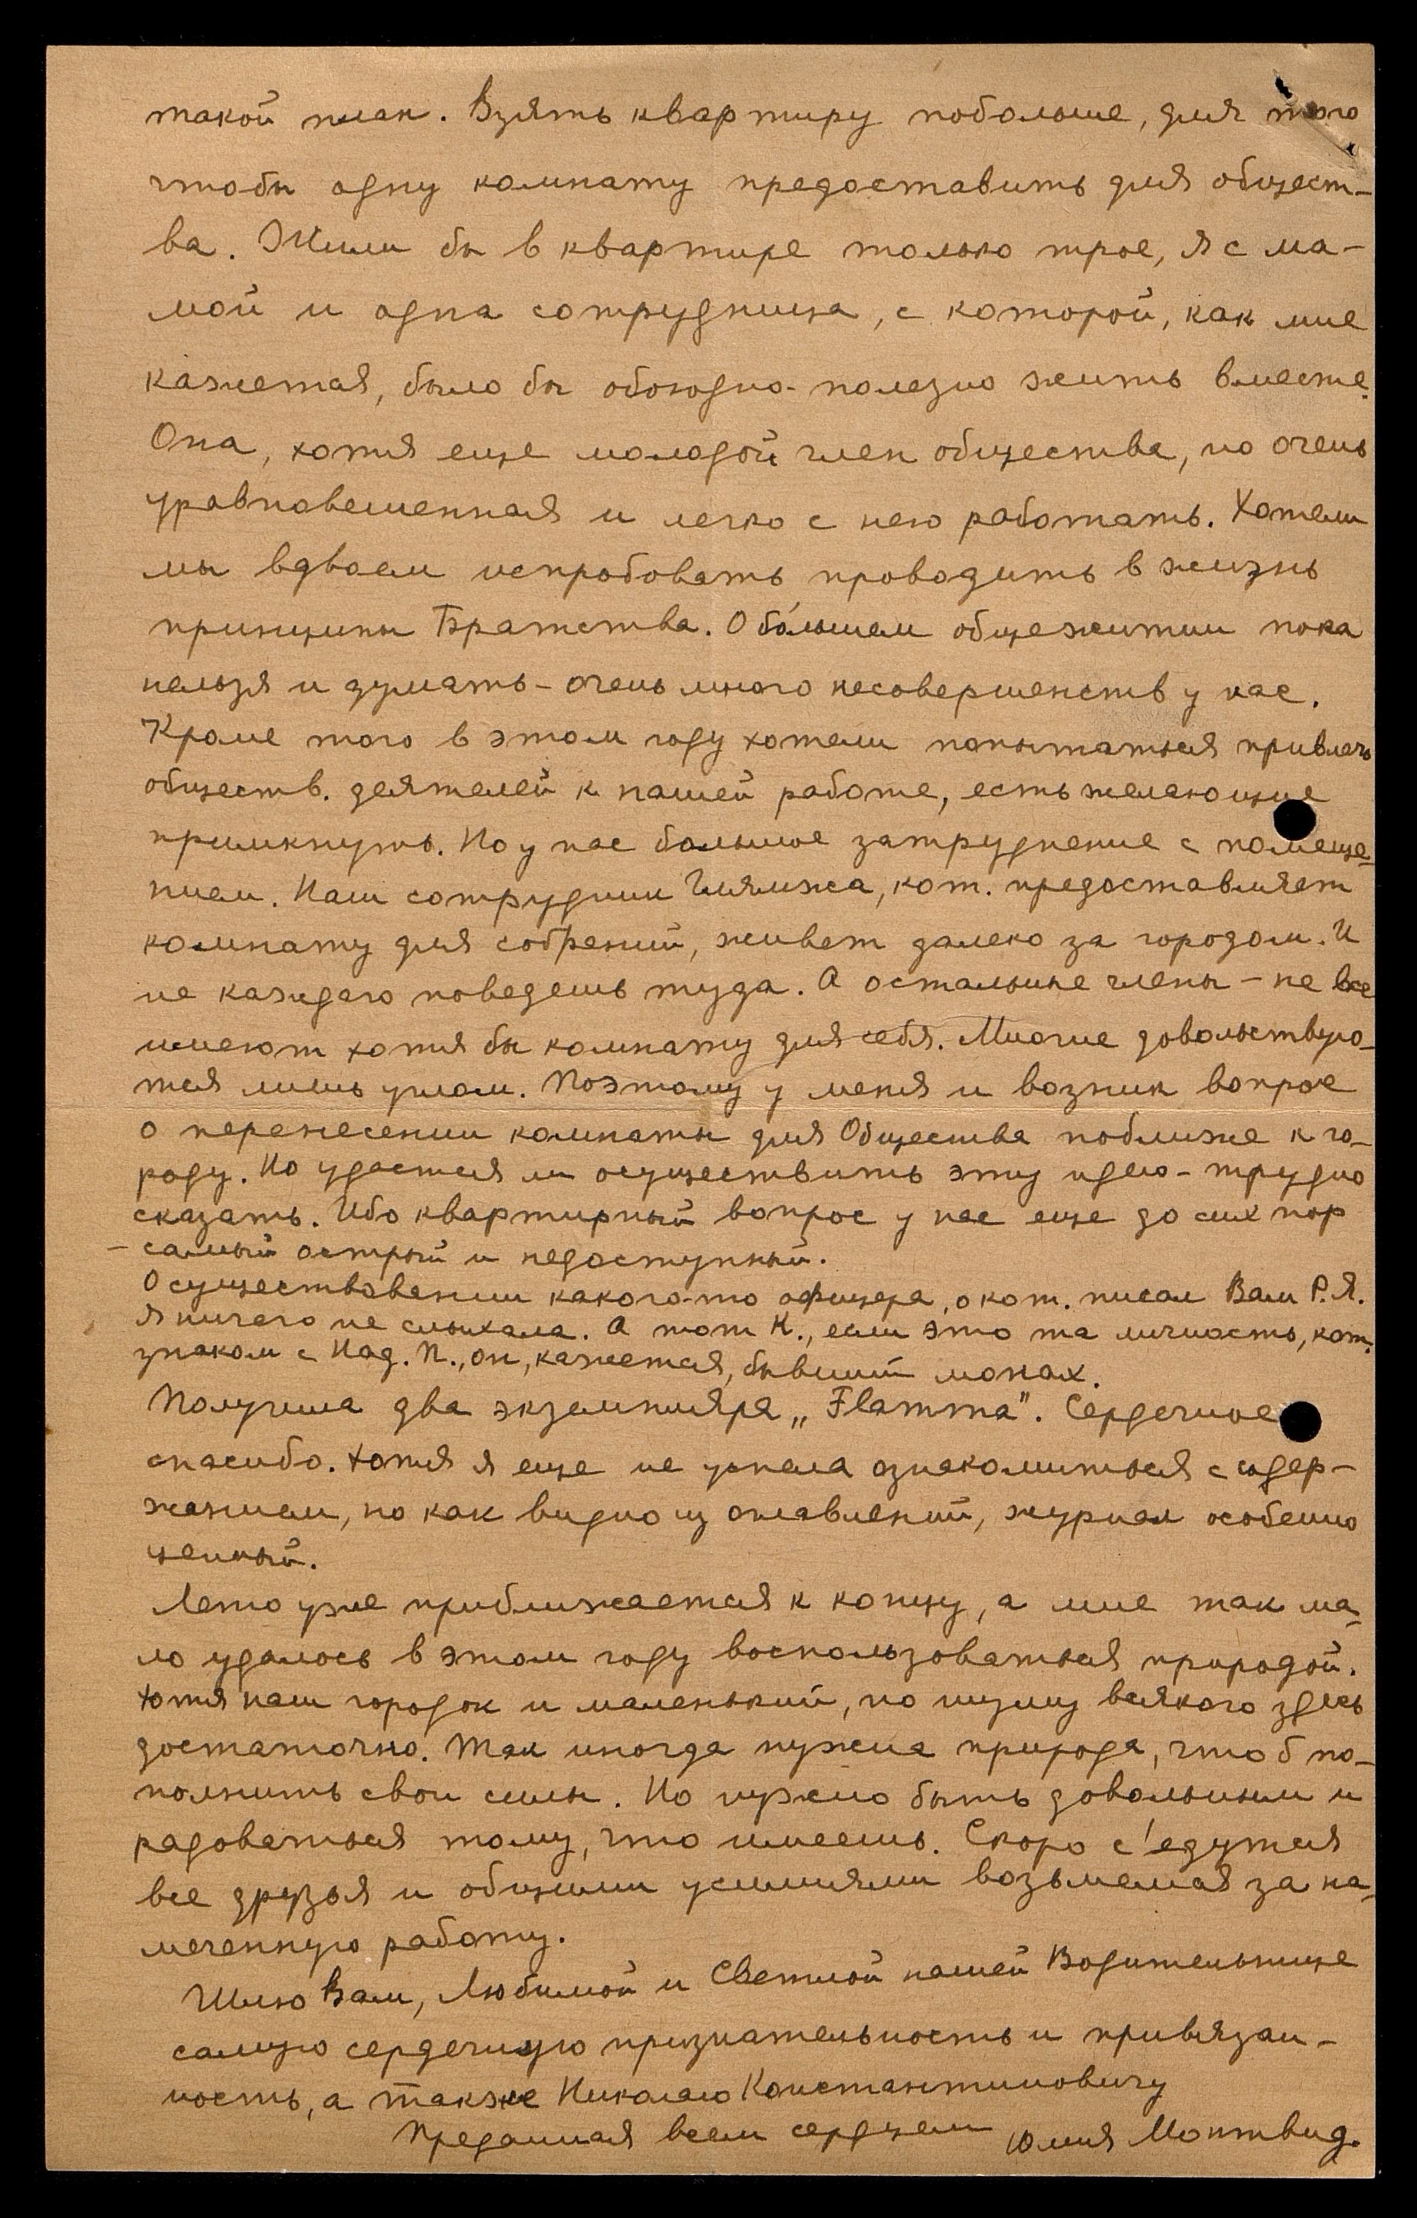 такой план. Взять квартиру побольше, для того
чтобы одну комнату предоставить для общест-
ва. Жили бы в квартире только трое, я с ма-
мой и одна сотрудница, с которой, как мне
кажется, было бы обоюдно-полезно жить вместе.
Она, хотя еще молодой член общества, но очень
уравновешенная и легко с нею работать. Хотели
мы вдвоем испробовать проводить в жизнь
принципы Братства. О бо́льшем общежитии пока
нельзя и думать – очень много несовершенств у нас.
Кроме того в этом году хотели попытаться привлечь
обществ. деятелей к нашей работе, есть желающие
примкнуть. Но у нас большое затруднение с помеще-
нием. Наш сотрудник Гилямжа, кот. предоставляет
комнату для собраний, живет далеко за городом. И
не каждаго поведешь туда. А остальные члены – не все
имеют хотя бы комнату для себя. Многие довольствую-
тся лишь углом. Поэтому у меня и возник вопрос
о перенесении комнаты для Общества поближе к го-
роду. Но удастся ли осуществить эту идею – трудно
сказать. Ибо квартирный вопрос у нас еще до сих пор
– самый острый и недоступный.
О существовании какого-то офицера, о кот. писал Вам Р.Я.
я ничего не слыхала. А тот К., если это та личность, кот.
знаком с Над. П., он, кажется, бывший монах.
Получила два экземпляра „Flamma". Сердечное
спасибо. Хотя я еще не успела ознакомиться с содер-
жанием, но как видно из оглавлений, журнал особенно
ценный.
Лето уже приближается к концу, а мне так ма-
ло удалось в этом году воспользоваться природой.
Хотя наш городок и маленький, но шуму всякого здесь
достаточно. Так иногда нужна природа, чтоб по-
полнить свои силы. Но нужно быть довольным и
радоваться тому, что имеешь. Скоро с'едутся
все друзья и общими усилиями возьмемся за на-
меченную работу.
Шлю Вам, Любимой и Светлой нашей Водительнице
самую сердечную признательность и привязан-
ность, а также Николаю Константиновичу
Преданная всем сердцем Юлия Монтвид.